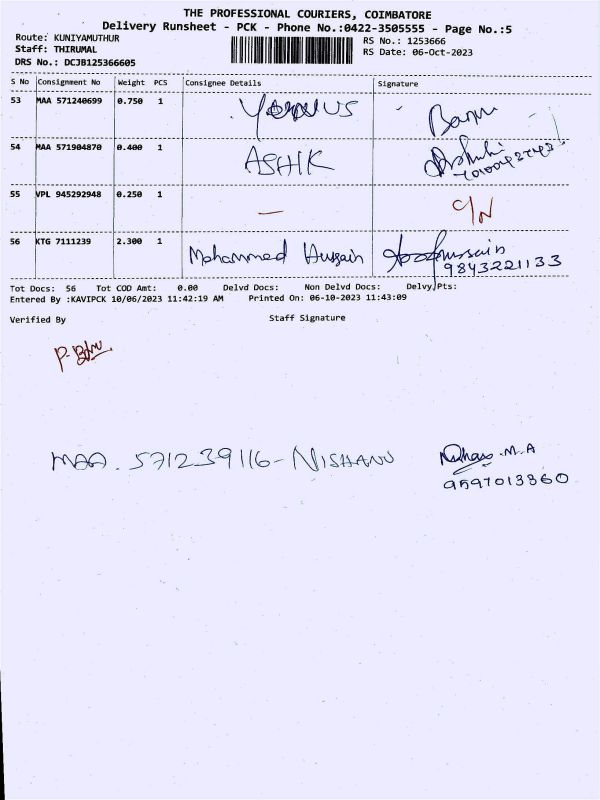 THE PROFESSIONAL COURIERS, COIMBATORE
Delivery Runsheet - PCK - Phone No.:0422-3505555 - Page No.:5
Route: KUNIYAMUTHUR
RS No.: 1253666
Staff: THIRUMAL
RS Date: 06-Oct-2023
DRS No.: DCJB125366605
S No Consignment No Weight PCS Consignee Details Signature
53 MAA 571240699 0.750 1
54 MAA 571904870 0.400 1 ASHIK
55 VPL 945292948 0.250 1 — C/N
56 KTG 7111239 2.300 1 Mohammed Hussain
9843221133
Tot Docs: 56 Tot COD Amt: 0.00 Delvd Docs: Non Delvd Docs: Delvy Pts:
Entered By :KAVIPCK 10/06/2023 11:42:19 AM Printed On: 06-10-2023 11:43:09
Verified By Staff Signature
MAA. 571239116 - NISHANU M.A
9597013860